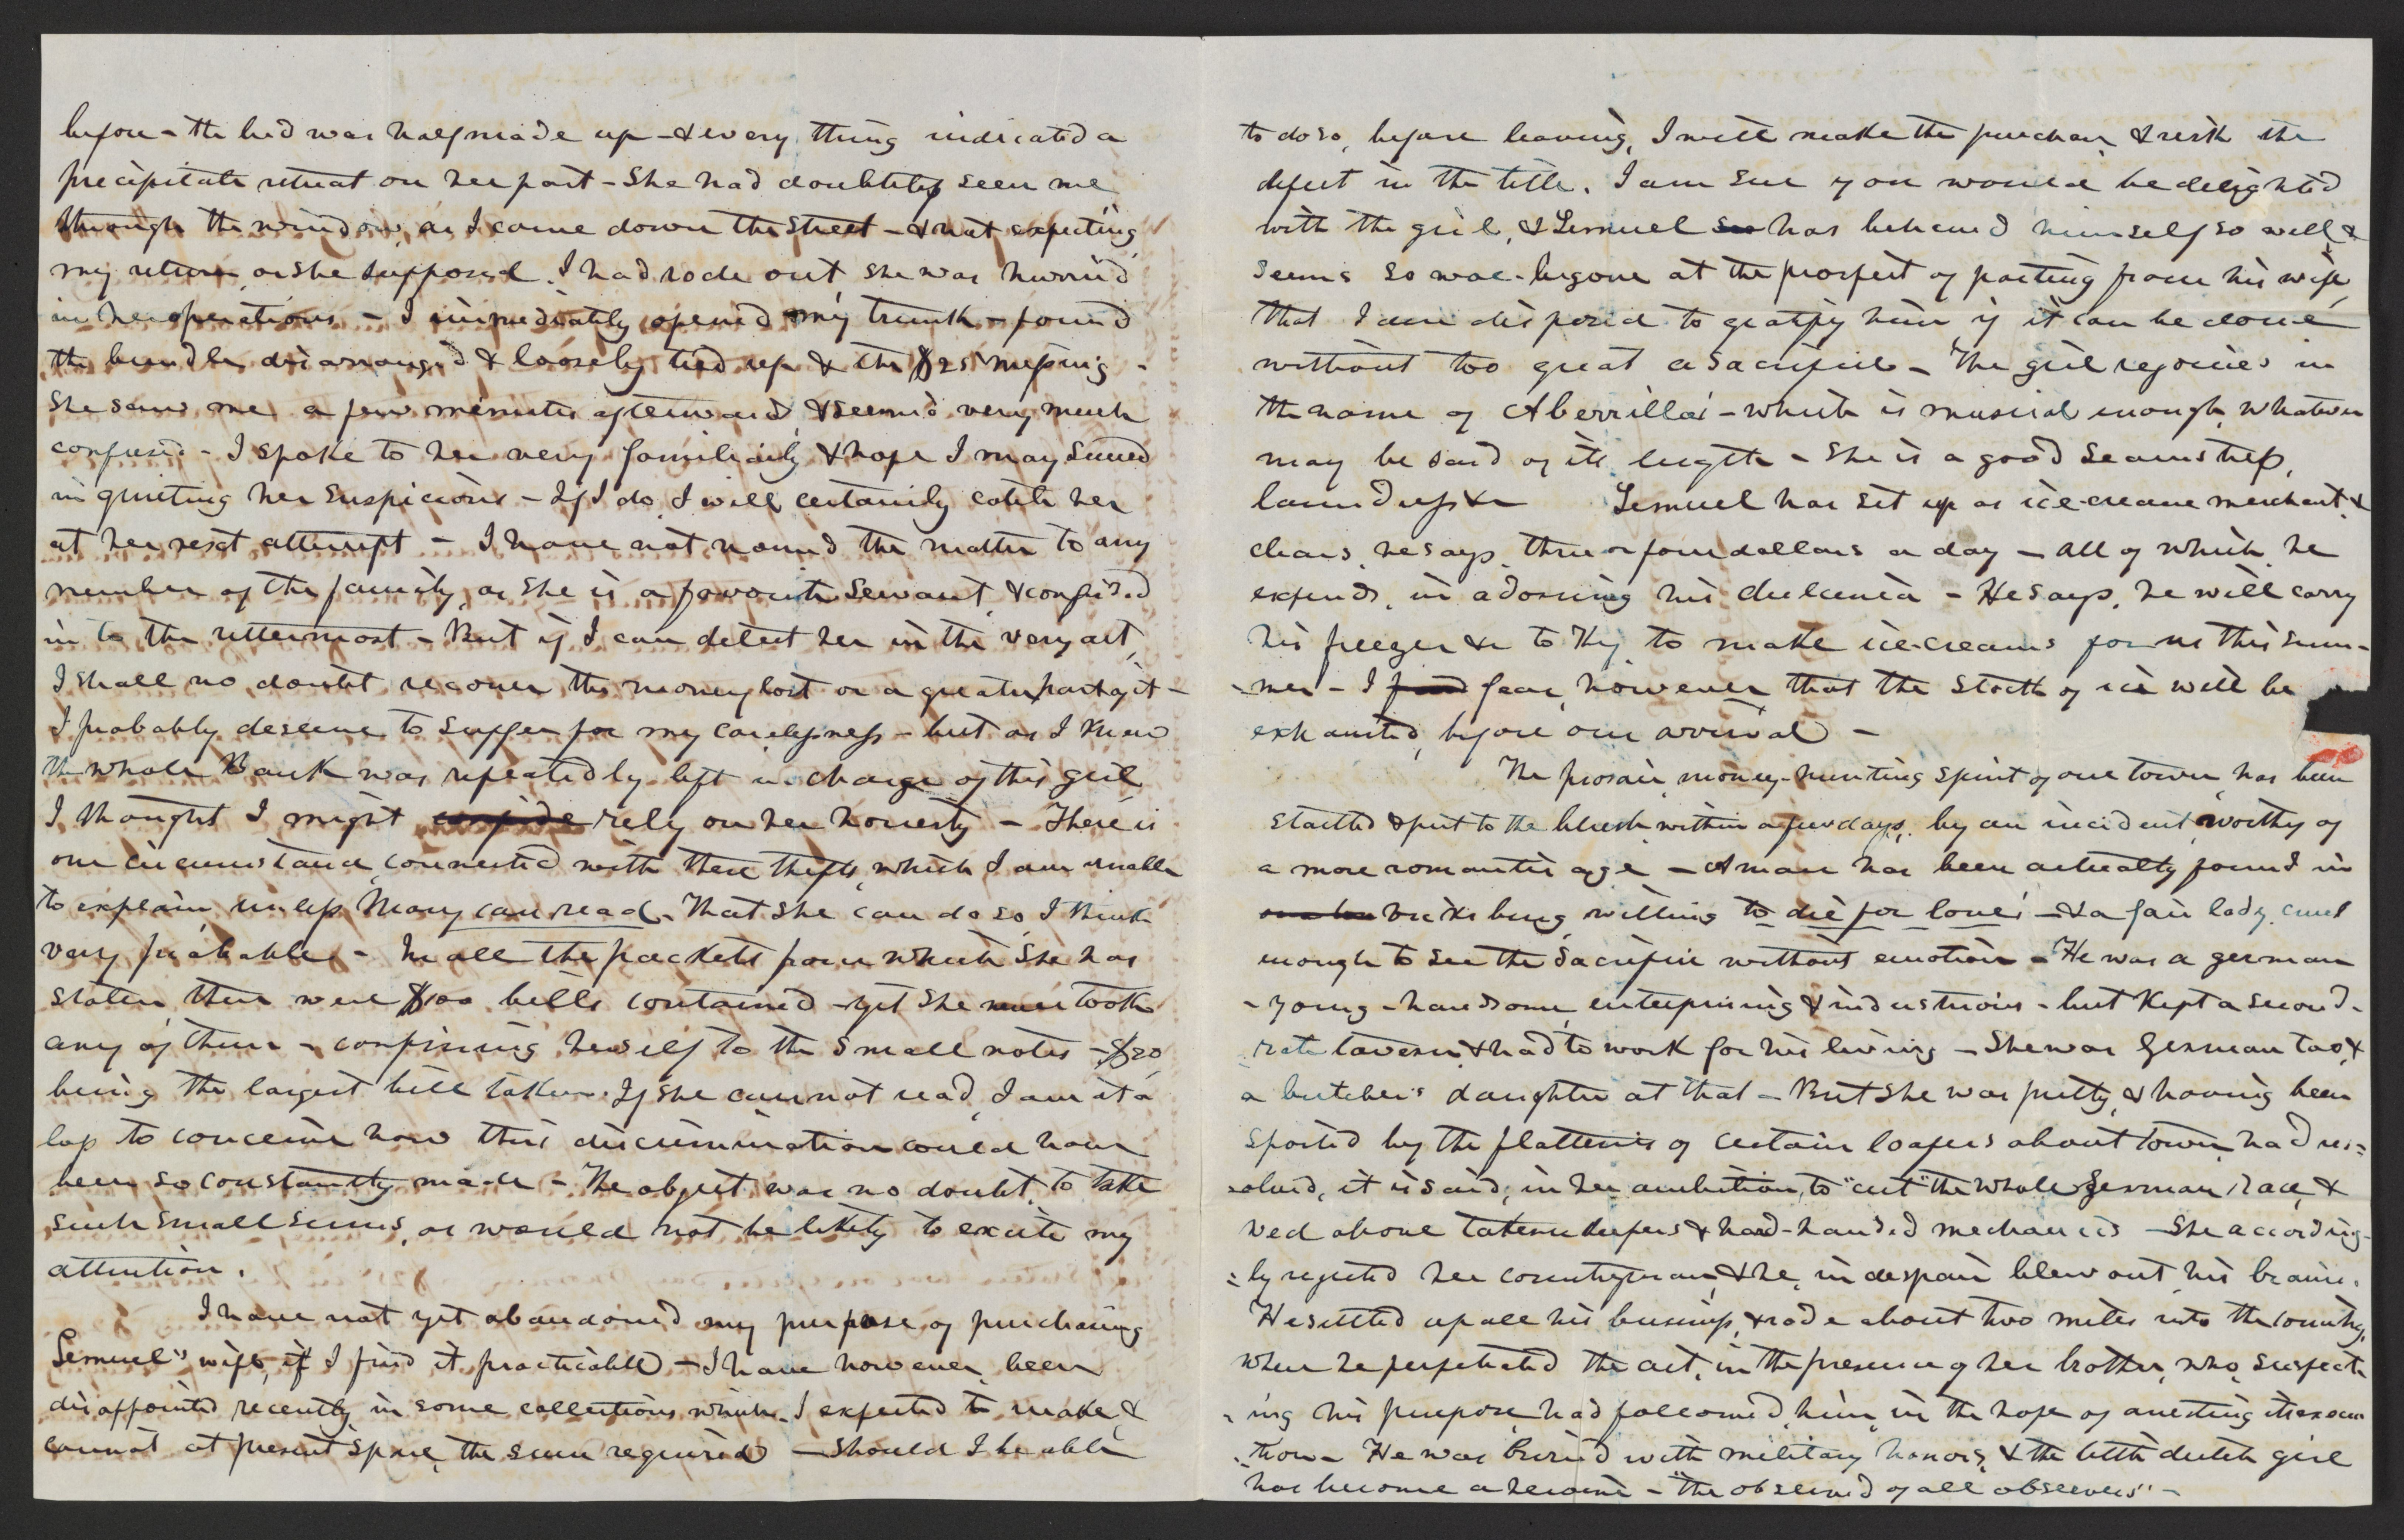 before - the bed was half made up - & every thing indicated a
precipitate retreat on her part - She had doubtless seen me,
through the window, as I came down the street - & not expecting
my return, as she supposed I had rode out she was hurried
in her operations - I immediately opened my trunk - found
the bundle disarranged & loosely tied up & the $25 missing -
She saw me a few minutes afterward, & seemed very much
confused - I spoke to her very familiarly & hope I may succeed
in quieting her suspicions - If I do, I will certainly catch her
at her next attempt - I have not named the matter to any
member of the family, as she is a favourite servant, & confided
in to the uttermost - But if I can detect her in the very act,
I shall no doubt recover the money lost or a greater part of it -
I probably deserve to suffer for my carelessness - but as I knew
the whole Bank was repeatedly left in charge of this girl
I thought I might confide rely on her honesty - There is
one circumstance connected with these thefts, which I am unable
to explain unless Mary can read. That she can do so I think
very probable - In all the packets from which she has
stolen there were $100 bills contained - yet she never took
any of them - confining herself to the small notes - $20
being the largest bill taken. If she cannot read, I am at a
loss to conceive how this discrimination could have
been so constantly made - The object was no doubt, to take
such small sums, as would not be likely to excite my
attention.
I have not yet abandoned my purpose of purchasing
Lemuel's wife, if I find it practicable - I have however, been
disappointed recently, in some collections which I expected to make, &
cannot at present spare, the sum required - Should I be able
to do so, before leaving, I will make the purchase, & risk the
defect in the title. I am sure you would be delighted
with the girl, & Lemuel has behaved himself so well, &
seems so woe-begone at the prospect of parting from his wife,
that I am disposed to gratify him if it can be done
without too great a sacrifice - The girl rejoices in
the name of Aberrilla - which is musical enough, whatever
may be said of its length - She is a good seamstress,
laundress &c Lemuel has set up as ice-cream merchant, &
clears, he says, three or four dollars a day - all of which he
expends, in adorning his dulcinia - He says, he will carry
his freezer &c to Ky to make ice-creams for us this sum-
-mer - I fear, however that the stock of ice will be
exhausted, before our arrival -
The prosaic, money-hunting spirit of our town, has been
startled & put to the blush within a few days, by an incident, worthy of
a more romantic age - A man has been actually found in
being, willing to die for love! - & a fair lady, cruel
enough to see the sacrifice without emotion - He was a german
- young - handsome, enterprising & industrious - but kept a second-
-rate tavern & had to work for his living - She was German too, &
a butcher's daughter at that - But she was pretty, & having been
spoiled by the flatteries of certain loafers about town, had re-
-solved, it is said, in her ambition, to "cut" the whole German race, &
wed above tavern keepers & hard-handed mechanics - She according-
-ly rejected her countryman, & he, in despair blew out his brains.
He settled up all his business, & rode about two miles into the country,
where he perpetrated the act, in the presence of her brother, who, suspect-
-ing his purpose, had followed him, in the hope of arresting its execu-
-tion - He was buried with military honors, & the little dutch girl
has become a heroine - "the observed of all observers" -